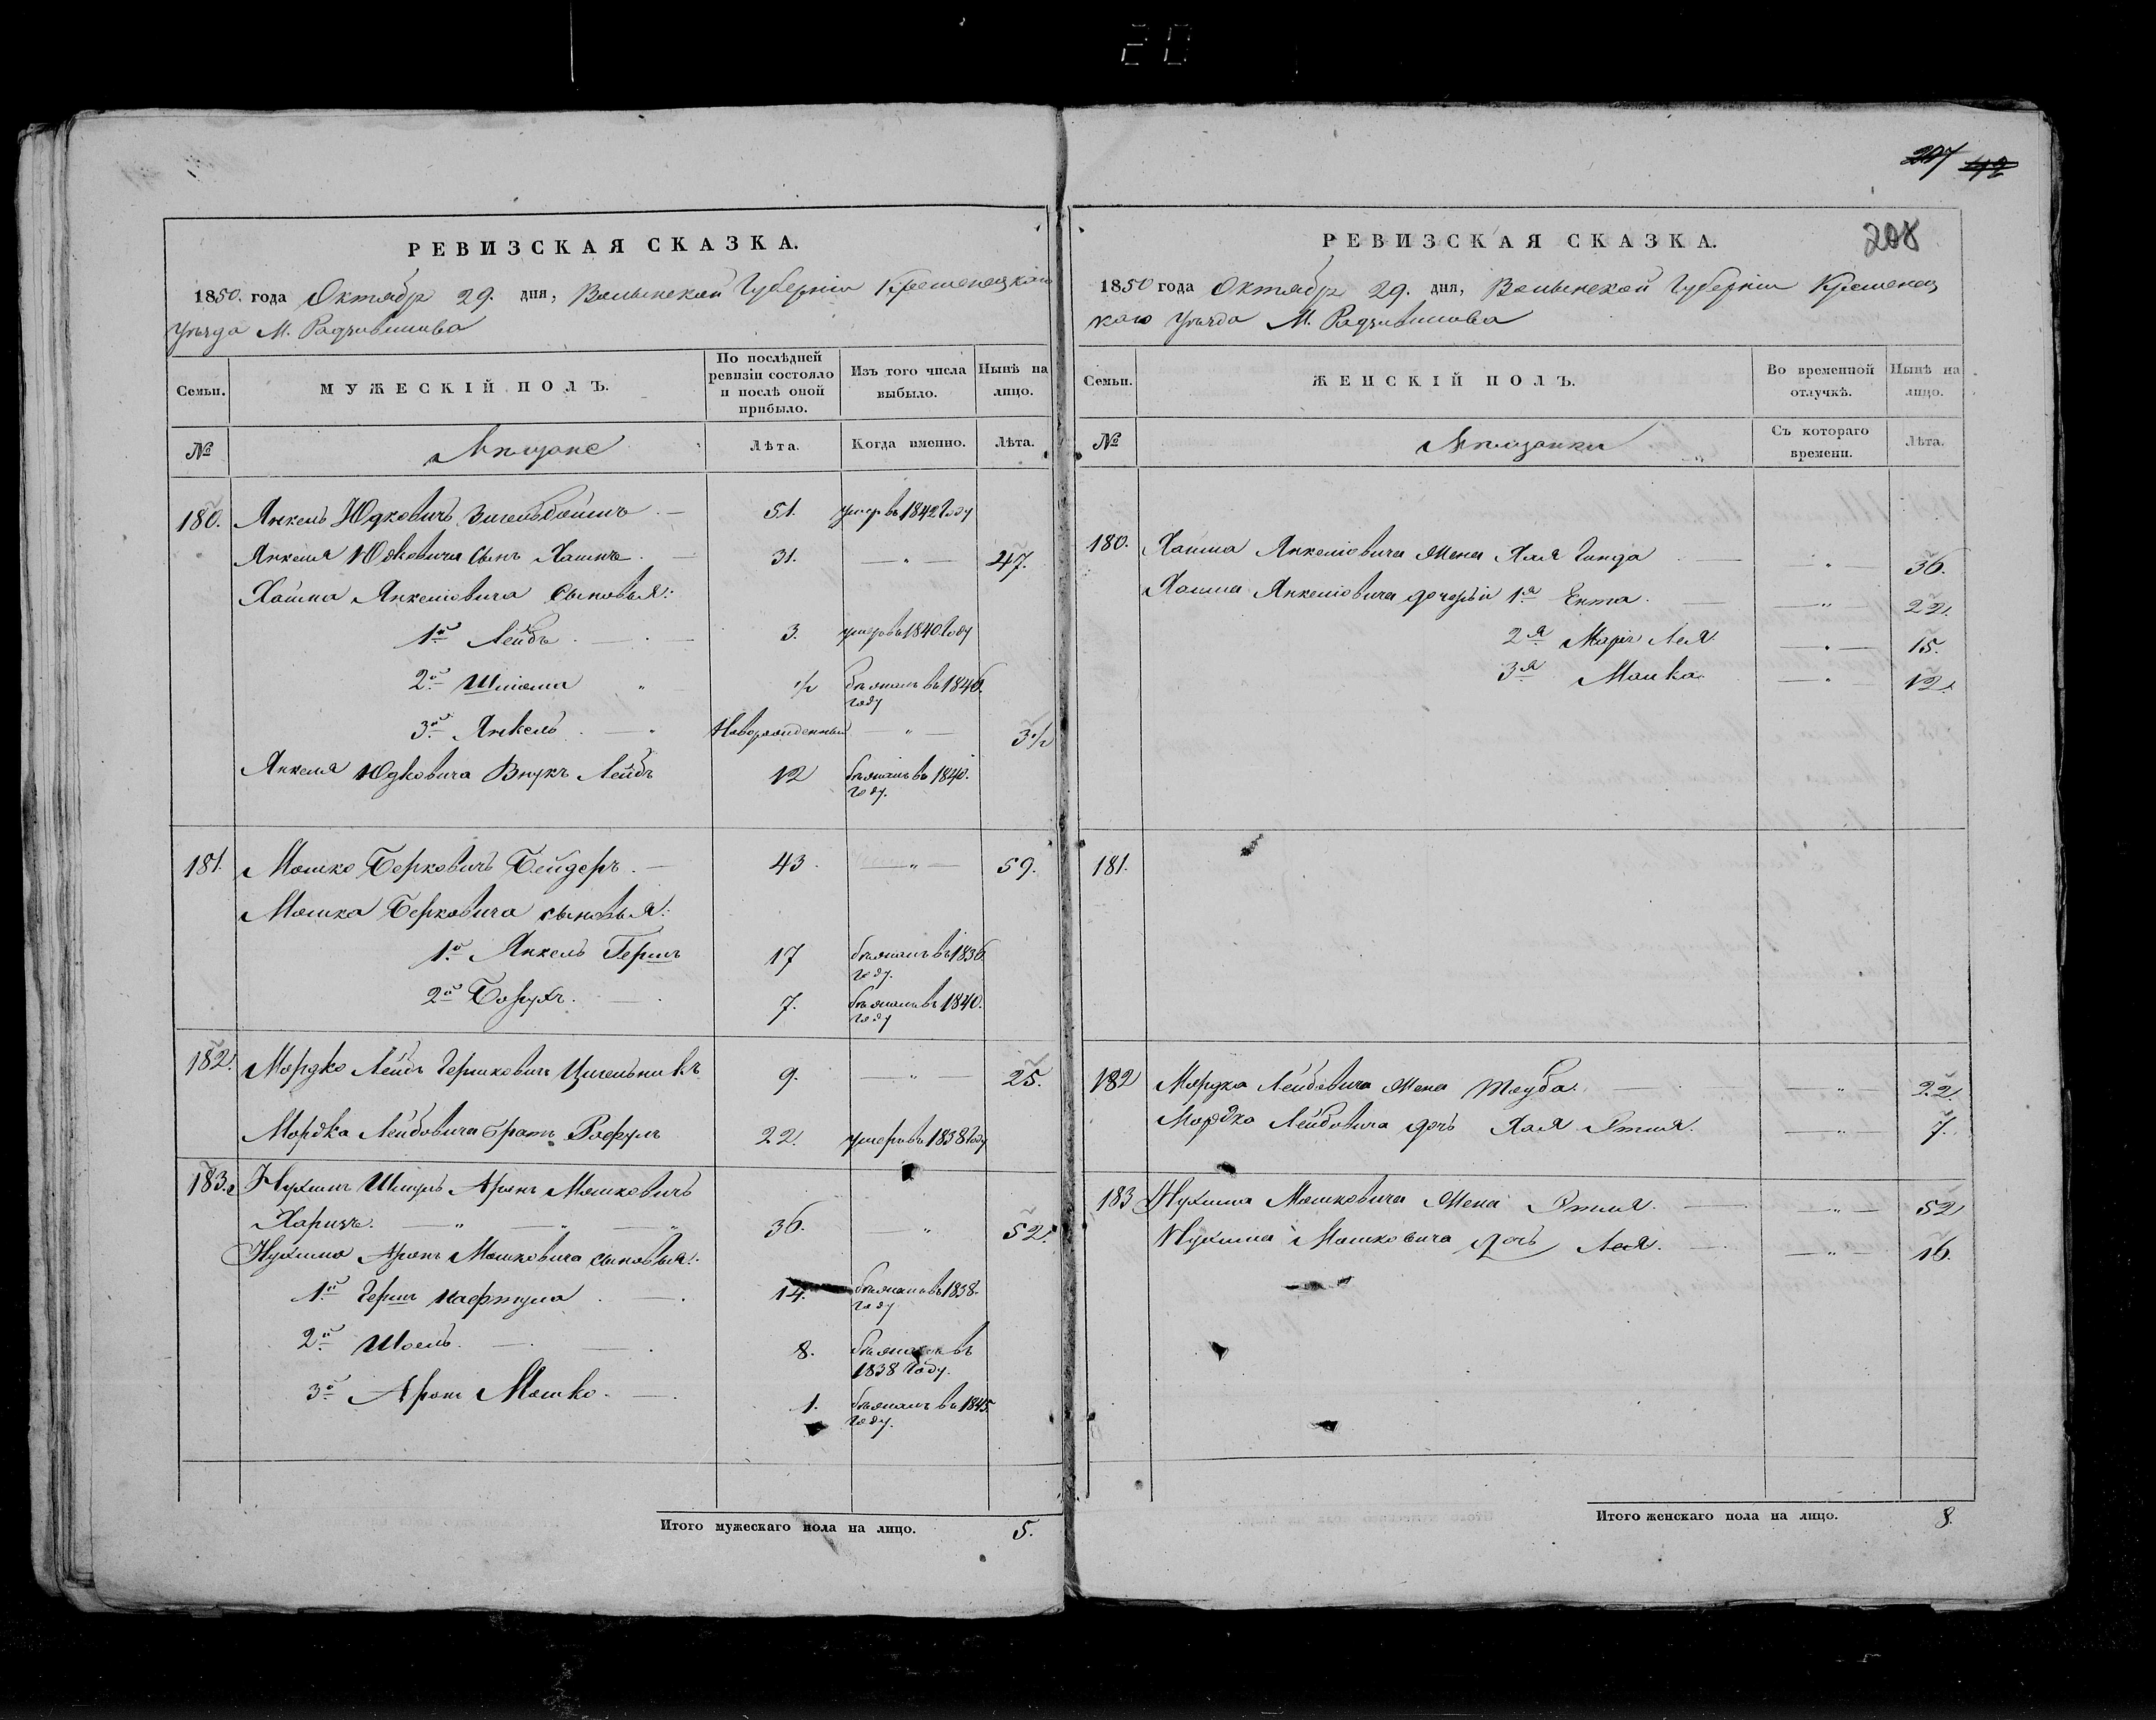 20
207 42
РЕВИЗСКАЯ СКАЗКА.
1850. года Октября 29. дня, Волынской Губерніи Кременецкаго
Уѣзда М. Радзивилова
Семьи. МУЖЕСКІЙ ПОЛЪ. По послѣдней ревизіи состояло и послѣ оной прибыло. Изъ того числа выбыло. Нынѣ на лицо.
№ Мѣщане Лѣта. Когда именно. Лѣта.
180. Янкель Юдковичъ 51. умеръ въ 1842 Году
Янкеля Юдковича Сынъ Хаимъ. 31. — " — 47.
Хаима Янкеліовича Сыновья:
1й Лейбъ 3. умеръ въ 1840 Году
2й Шліома " 1/2 бѣжалъ въ 1846. году
3й Янкель Новорожденный — " — 3 1/2
Янкеля Юдковича Внукъ Лейбъ 12 бѣжалъ въ 1840. году.
181. Мошко Берковичъ Бейдеръ. 43. — " — 59.
Мошка Берковича сыновья:
1й Янкель Гершъ 17 бѣжалъ въ 1836. году.
2й Борухъ. 7. бѣжалъ въ 1840. году
182. Мордко Лейбъ Гершковичъ Цигельникъ 9. — " — 25.
Мордка Лейбовича братъ Рафулъ 22. умеръ въ 1838 Году
183. Нухимъ Шмуль Аронъ Мошковичъ
Харизъ. — " — " — " 36. — " 52.
Нухима Аронъ Мошковича сыновья:
1й Гершъ Нафтула 14. бѣжалъ въ 1838. году
2й Шоель. 8. бѣжалъ въ 1838 Году.
3й Аронъ Мошко. 1. бѣжалъ въ 1845. году.
Итого мужескаго пола на лицо. 5.
РЕВИЗСКАЯ СКАЗКА. 208
1850 года Октября 29. дня, Волынской Губерніи Кременец
каго Уѣзда М. Радзивилова
Семьи. ЖЕНСКІЙ ПОЛЪ. Во временной отлучкѣ. Нынѣ на лицо.
№ Мѣщанки Съ котораго времени. Лѣта.
180. Хаима Янкеліовича жена Хая Гинда — " — 36.
Хаима Янкеліовича дочерьи 1я Ента. — " — 22.
2я Маріъ Лея — " — 15.
3я Малка — " — 12.
181.
182 Мордка Лейбовича жена Тауба. " 22.
Мордка Лейбовича дочь Хая Этля. — " — 7.
183 Нухима Мошковича жена Этля. — " — 52
Нухима Мошковича Дочь Лея. — " — 16.
Итого женскаго пола на лицо. 8.